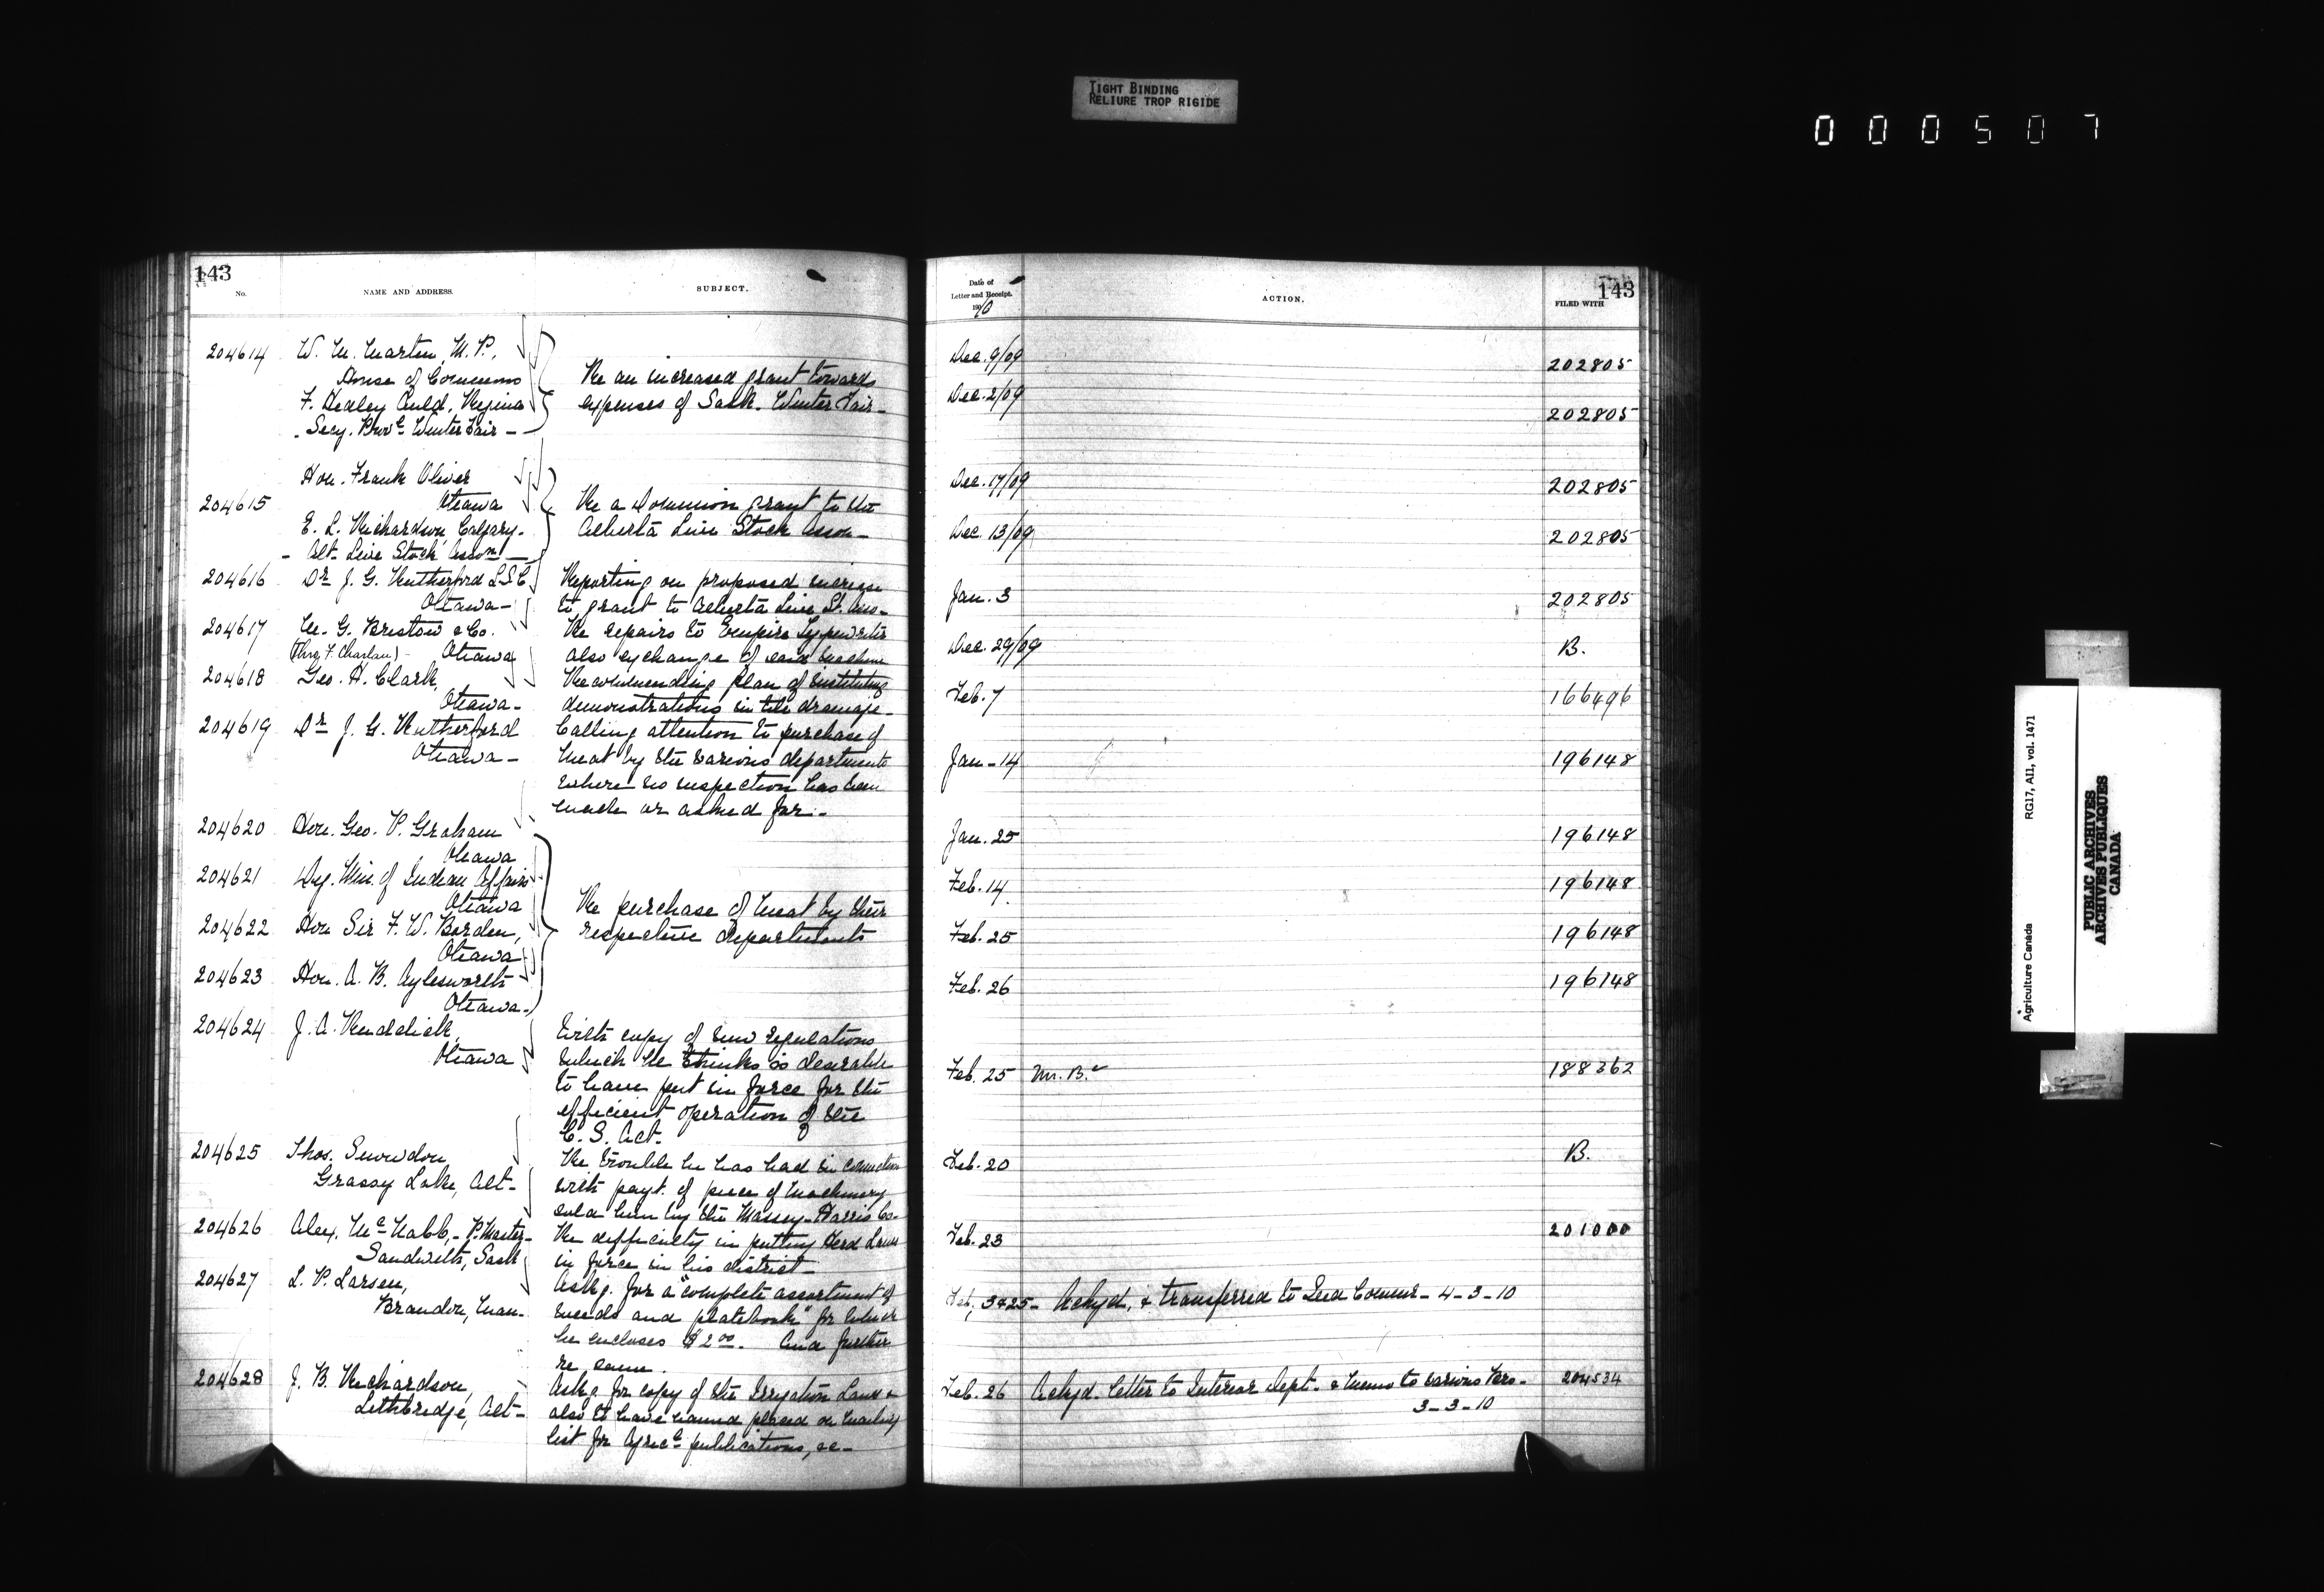 TIGHT BINDING
RELIURE TROP RIGIDE
000507
143
No.
NAME AND ADDRESS.
SUBJECT.
204614 W. M. Martin, M.P.,
House of Commons
F. Hedley Auld, Regina
Secy. Provl. Winter Fair -
Re an increased grant towards
expenses of Sask. Winter Fair -
Hon. Frank Oliver
204615 Ottawa
E. L. Richardson, Calgary.
- Alt. Live Stock Asson -
Re a Dominion grant to the
Alberta Live Stock Asson -
204616 Dr J. G. Rutherford L.S.C.
Ottawa -
Reporting on proposed increase
to grant to Alberta Live St. Asso -
204617 W. G. Bristow & Co.
(Thro F. Charlan) - Ottawa
Re repairs to Empire Typewriter
also exchange of said machine
204618 Geo. H. Clark,
Ottawa -
Recommending plan of instituting
demonstrations in tile drainage -
204619 Dr J. G. Rutherford
Ottawa -
Calling attention to purchase of
meat by the various departments
where no inspection has been
made or asked for. -
204620 Hon. Geo. P. Graham
Ottawa
204621 Dep. Min. of Indian Affairs
Ottawa
204622 Hon Sir F. W. Borden,
Ottawa
204623 Hon. A. B. Aylesworth
Ottawa -
Re purchase of meat by their
respective departments
204624 J. A. Ruddick,
Ottawa
With copy of new regulations
which he thinks is desirable
to have put in force for the
efficient operation of the
C. S. Act.
204625 Thos. Snowdon
Grassy Lake, Alt -
Re trouble he has had in connection
with payt. of piece of machinery
sold him by the Massey-Harris Co.
204626 Alex. McNabb, - P. Master -
Sandwith, Sask
Re difficulty in putting Herd Laws
in force in his district -
204627 L. P. Larsen,
Brandon, Man -
Askg. for a "complete assortment of
weeds and platebook" for which
he encloses $2.00. And further
re same.
204628 J. B. Richardson,
Lethbridge, Alt -
Askg for copy of the Irrigation Laws &
also to have named placed on mailing
list for Agricl publications, &c -
Date of
Letter and Receipt.
1910
ACTION.
143
FILED WITH
Dec. 9/09 202805
Dec. 2/09 202805
Dec. 17/09 202805
Dec. 13/09 202805
Jan. 3 202805
Dec. 29/09 B.
Feb. 7 166496
Jan - 14 196148
Jan. 25 196148
Feb. 14 196148
Feb. 25 196148
Feb. 26 196148
Feb. 25 Mr. B. 188362
Feb. 20 B.
Feb. 23 201000
Feb, 3 & 25 - Ackgd, & transferred to Seed Commr - 4-3-10
Feb. 26 Ackgd. letter to Interior Dept. & memo to various
3-3-10 204534
Agriculture Canada RG17, AI1, vol. 1471
PUBLIC ARCHIVES
ARCHIVES PUBLIQUES
CANADA